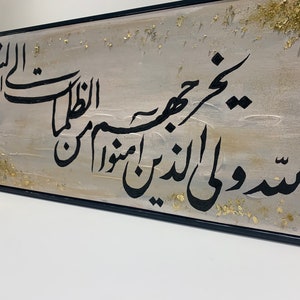 لله ولى الذين امنوا
يخرجهم من الظلمات الى